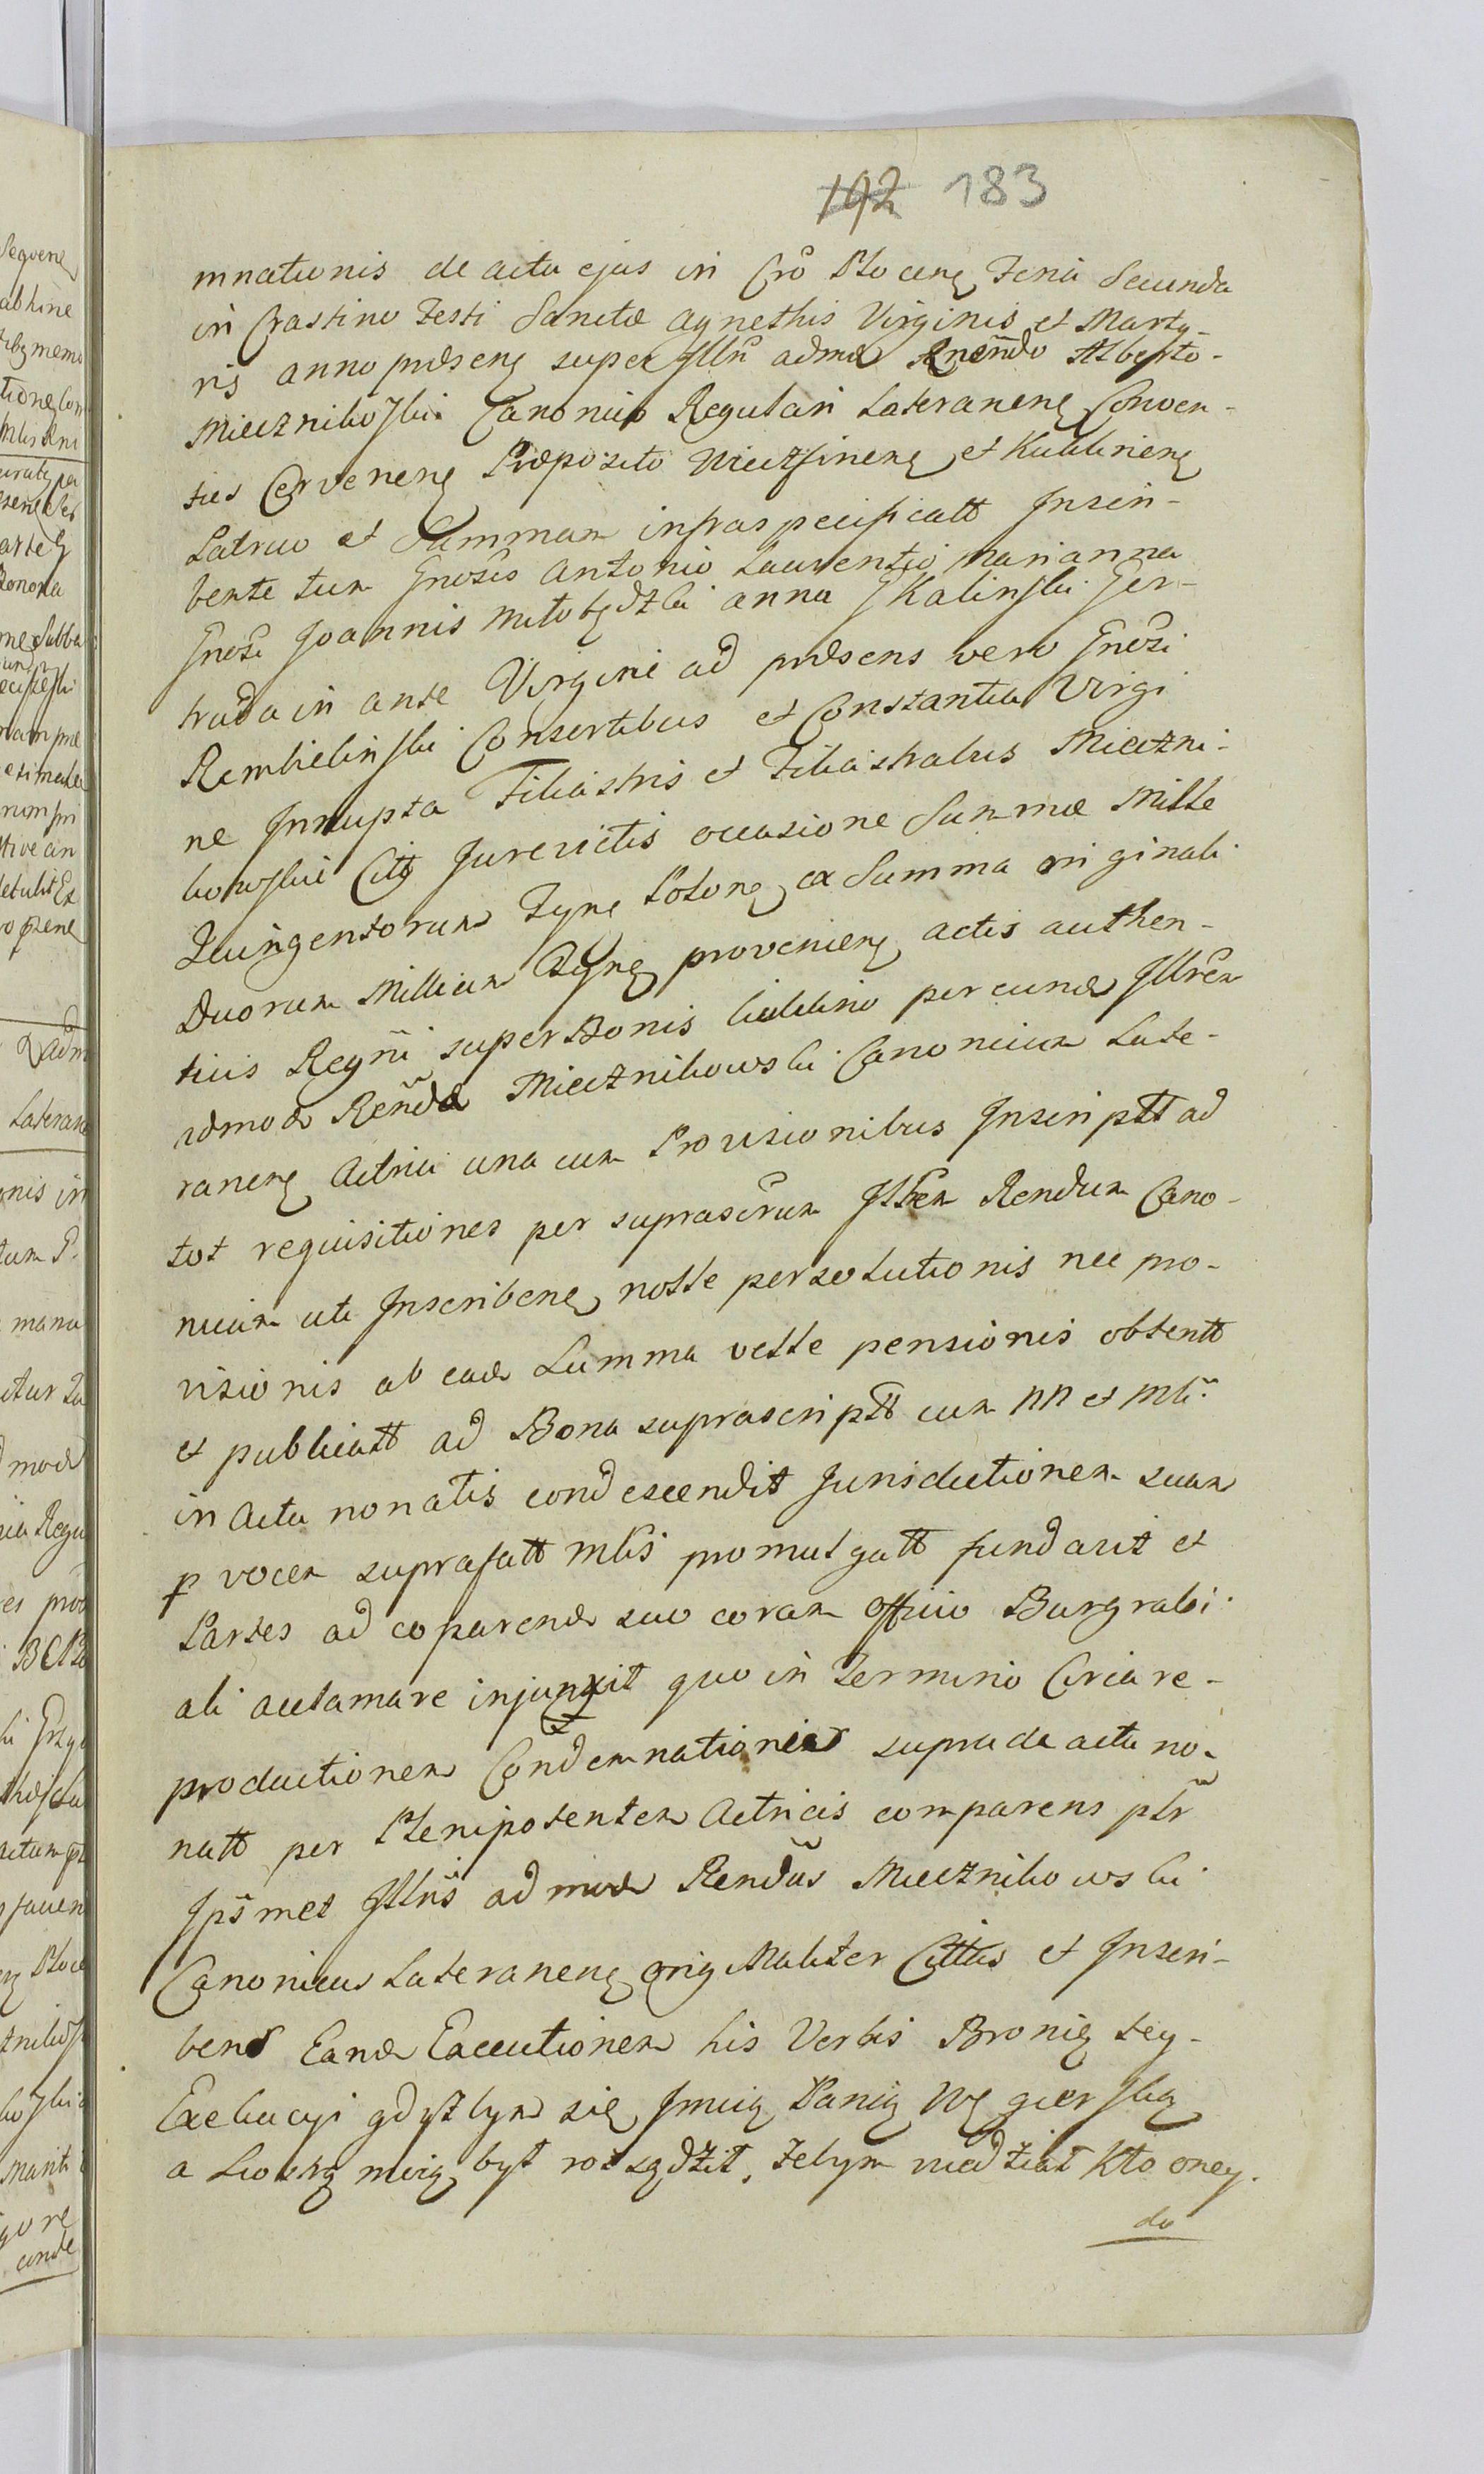 192 183
mnationis de actu ejus in Cro Plocene Feria Secunda
in Crastino Festi Sanctæ Agnethis Virginis et Marty-
ris anno præsene super Illri admod Rnendo Alberto
Mieczniko/ski Canonico Regulari Lateranene Conven-
tus Cervenene Præposito Wieczfinene et Kuklinene
Patruo et Summam infraspecificatt Inscri-
bente tum Gnosis Antonio Laurentio Marianna
Gnosi Joannis Miłobędzki Anna Skalinski Ger-
truda in ante Virgine ad præsens vero Gnosi
Rembielinski Consortibus et Constantia Virgi
ne Innupta Filiastris et Filiastrabus Mieczni-
kowskie Citt Jurevictis occasione Summæ Mille
Quingentorum Fgne Polone ex Summa originali
Duorum Millium Flgne proveniene actis authen-
ticis Regni super Bonis Kuklino per eund Illrem
admod Rendd Miecznikowski Canonicum Late-
ranene Actrici una cum Provisionibus Inscriptt ad
tot requisitiones per suprascrum Illrem Rendum Cano-
nicum uti Inscribene nolle persolutionis nec pro-
visionis ab ead Summa velle pensionis obtentt
et publicatt ad Bona suprascriptt cum NN et Mli
in Actu nonatis condescendit Jurisdictionem suam
p vocem suprafatt Mlis promulgatt fundavit et
Partes ad coparend suo coram Officio Burgrabi
ali acclamare injunxit quo in Termino Circa re-
productionem Condemnationis supra de actu no-
natt per Plenipotentem Actricis comparens plr
Ipsmet Illris admod Rendus Miecznikowski
Canonicus Lateranene originaliter Cittus et Inscri-
bens Eand Executionem his Verbis Bronię tey
Exekucyi gdyżbym się Jmcią Panią Węgierską
a Siostrą moią był rozsądził, żebym wiedział kto oney
do